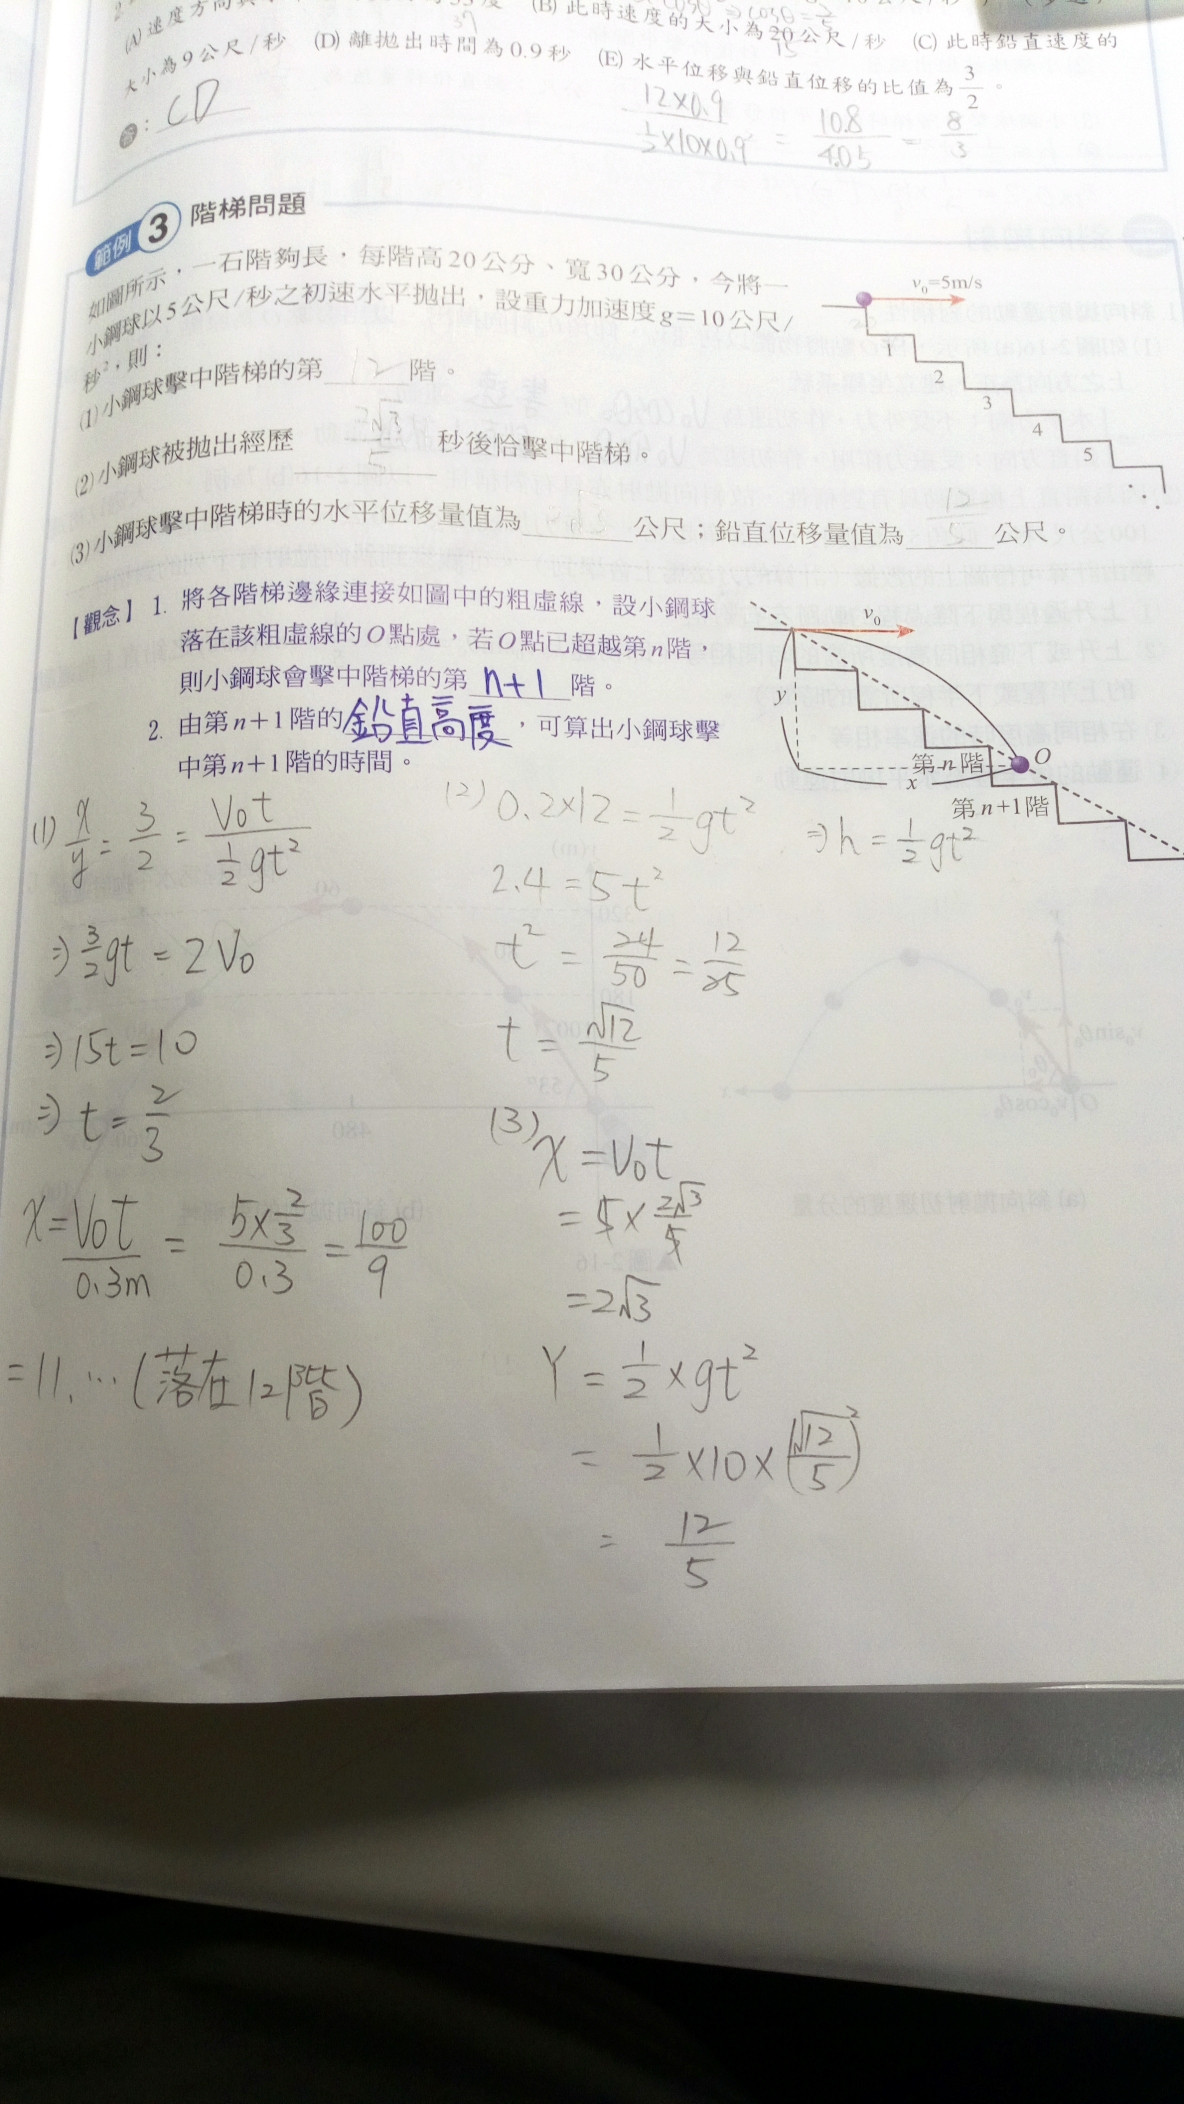 (A) 速度方向與水 度 (B) 此時速度的大小為20公尺/秒 (C) 此時鉛直速度的
大小為9公尺/秒 (D) 離拋出時間為0.9秒 (E) 水平位移與鉛直位移的比值為3/2。
37
15
答:CD
12×0.9 / ½×10×0.9² = 10.8/4.05 = 8/3
範例 3 階梯問題
如圖所示,一石階夠長,每階高20公分、寬30公分,今將一
小鋼球以5公尺/秒之初速水平拋出,設重力加速度g=10公尺/
秒²,則:
(1) 小鋼球擊中階梯的第 12 階。
(2) 小鋼球被拋出經歷 2√3/5 秒後恰擊中階梯。
(3) 小鋼球擊中階梯時的水平位移量值為 2√3 公尺;鉛直位移量值為 12/5 公尺。
v₀=5m/s
1
2
3
4
5
【觀念】1. 將各階梯邊緣連接如圖中的粗虛線,設小鋼球
落在該粗虛線的O點處,若O點已超越第n階,
則小鋼球會擊中階梯的第 n+1 階。
2. 由第n+1階的鉛直高度,可算出小鋼球擊
中第n+1階的時間。
v₀
y
O
第n階
x
第n+1階
(1) x/y = 3/2 = V₀t / ½gt²
⇒ 3/2 gt = 2V₀
⇒ 15t=10
⇒ t = 2/3
x = V₀t / 0.3m = 5×2/3 / 0.3 = 100/9
=11.…(落在12階)
(2) 0.2×12 = ½gt² ⇒ h = ½gt²
2.4 = 5t²
t² = 24/50 = 12/25
t = √12/5
(3) x = V₀t
= 5 × 2√3/5
= 2√3
Y = ½ × gt²
= ½ ×10×(√12/5)²
= 12/5